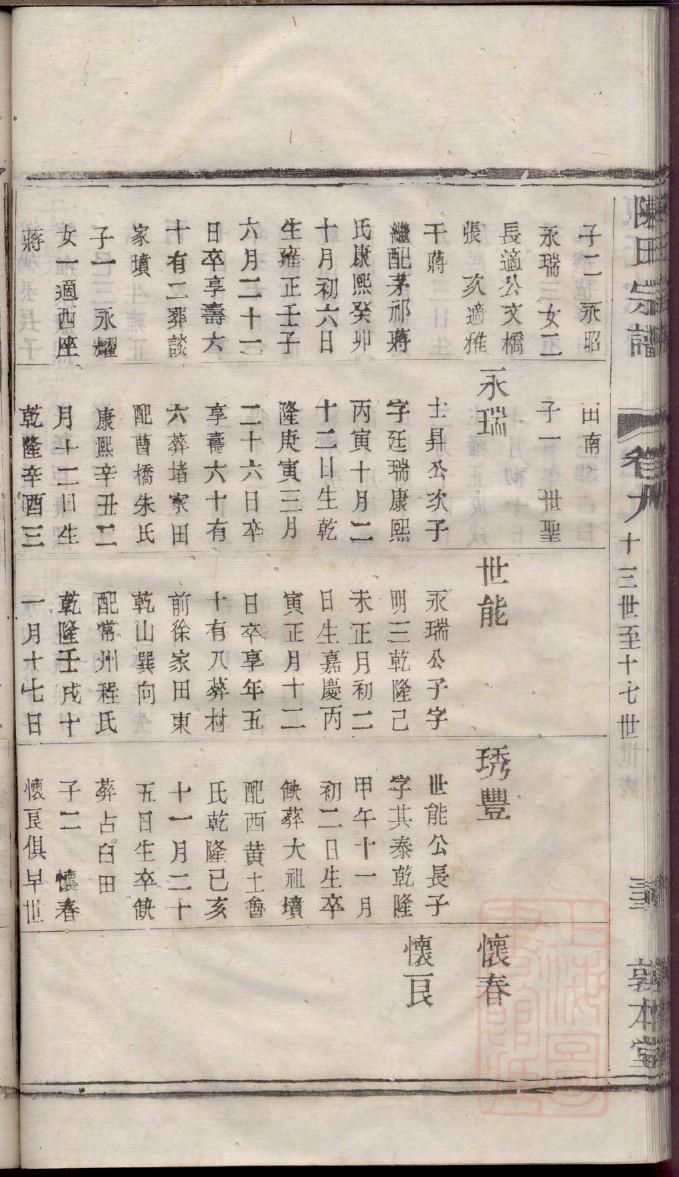 陳氏宗譜
卷九
十三世至十七世世表
敦本堂
子二 永昭
永瑞 女二
長適公文橋
張 次適雅
干蔣
繼配茅祁蔣
氏康熙癸卯
十月初六日
生雍正壬子
六月二十一
日卒享壽六
十有二葬談
家墳
子一 永耀
女一適西座
蔣
田南
子一 世聖
永瑞
士昇公次子
字廷瑞康熙
丙寅十月二
十二日生乾
隆庚寅三月
二十六日卒
享壽六十有
六葬堵家田
配曹橋朱氏
康熙辛丑二
月十二日生
乾隆辛酉三
世能
永瑞公子字
明三乾隆己
未正月初二
日生嘉慶丙
寅正月十二
日卒享年五
十有八葬村
前徐家田東
乾山巽向
配常州程氏
乾隆壬戌十
一月十七日
琇豐
世能公長子
字其泰乾隆
甲午十一月
初二日生卒
缺葬大祖墳
配西黄土魯
氏乾隆己亥
十一月二十
五日生卒缺
葬占臼田
子二 懷春
懷良俱早世
懷春
懷良